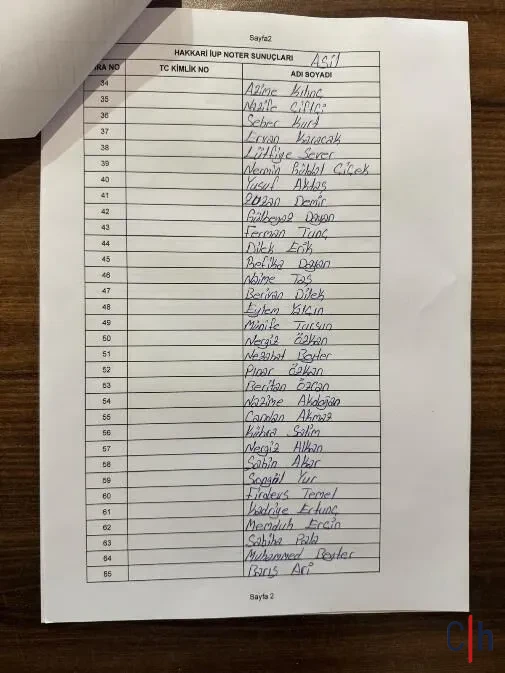 Sayfa2
HAKKARİ İUP NOTER SUNUÇLARI Asil
RA NO TC KİMLİK NO ADI SOYADI
34 Azime Kılınç
35 Nazife Çiftçi
36 Seher Kurt
37 Ervan Karacak
38 Lütfiye Sever
39 Nermin Çiçek
40 Yusuf Aktaş
41 Demir
42 Gülbeyaz Dayan
43 Ferman Tunç
44 Dilek Erik
45 Refika Dayan
46 Naime Taş
47 Berivan Dilek
48 Eylem Yalçın
49 Münife Tursun
50 Nergiz Özkan
51 Nezahat Beyter
52 Pınar Özkan
53 Beritan Özcan
54 Nazime Akdoğan
55 Candan Akmaz
56 Kübra Salim
57 Nergiz Alkan
58 Sabin Akar
59 Songül Yur
60 Firdevs Temel
61 Kadriye Ertunç
62 Memduh Ercin
63 Sabiha Pala
64 Muhammed Beyter
65 Barış Ari
Sayfa 2
C|h